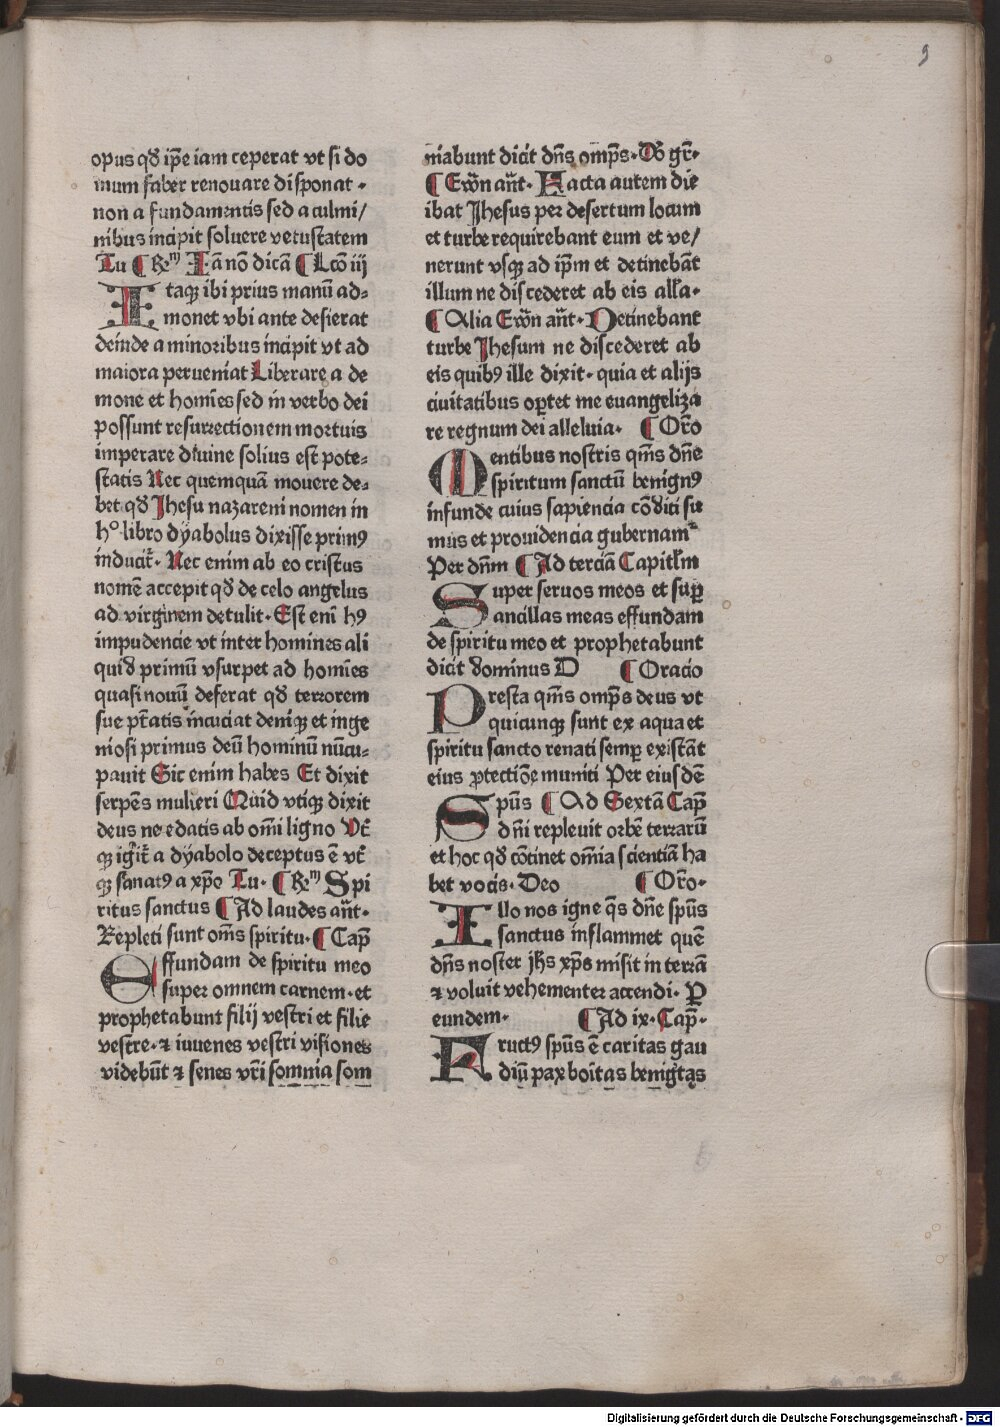 9
opus qð ip̄e iam ceperat vt si do
mum faber renouare disponat ·
non a fundamentis sed a culmi/
nibus incipit soluere vetustatem
Tu ¶ Rm I ā nō dicā ¶ Lcō iij
Itaq̨ ibi prius manū ad⸗
monet vbi ante desierat
deinde a minoribus incipit vt ad
maiora perueniat Liberare a de
mone et hom̄ies sed in verbo dei
possunt resurrectionem mortuis
imperare diuine solius est pote⸗
statis Nec quemquā mouere de⸗
bet qð Jhesu nazareni nomen in
hº libro dyabolus dixisse primꝰ
inducit̄· Nec enim ab eo cristus
nomē accepit qð de celo angelus
ad virginem detulit· Est enī hꝰ
impudencie vt inter homines ali
quid primū vsurpet ad hom̄ies
quasi nouū deferat qð terrorem
sue ptātis incuciat deniq̨ et inge
niosi primus deū hominū nūcu⸗
pauit Sic enim habes Et dixit
serpēs mulieri Quid vtiq̨ dixit
deus ne edatis ab om̄i ligno Vt̄
q̨ igit̄ a dyabolo deceptus ē vt̄
q̨ sanatꝰ a xp̄o Tu· ¶ Rm Spi
ritus sanctus ¶ Ad laudes an̄t·
Repleti sunt om̄s spiritu· ¶ Cap̄
Effundam de spiritu meo
super omnem carnem· et
prophetabunt filij vestri et filie
vestre· ⁊ iuuenes vestri visiones
videbūt ⁊ senes vr̄i somnia som
niabunt dicit dn̄s omp̄s· Dō gr̄·
¶ Ew̄n an̄t· Facta autem die
ibat Jhesus per desertum locum
et turbe requirebant eum et ve/
nerunt vsq̨ ad ip̄m et detinebāt
illum ne discederet ab eis all̄a·
¶ Alia Ew̄n an̄t· Detinebant
turbe Jhesum ne discederet ab
eis quibꝰ ille dixit· quia et alijs
ciuitatibus op̄tet me euangeliza
re regnum dei alleluia· ¶ Or̄o
Mentibus nostris qm̄s dn̄e
spiritum sanctū benignꝰ
infunde cuius sapiencia cōditi su
mus et prouidencia gubernam̄
Per dn̄m ¶ Ad terciā Capitl̄m
Super seruos meos et sup̄
ancillas meas effundam
de spiritu meo et prophetabunt
dicit dominus D ¶ Oracio
Presta qm̄s omp̄s deus vt
quicunq̨ sunt ex aqua et
spiritu sancto renati semp̄ existāt
eius ꝓtectiōe muniti Per eiusdē
Spūs ¶ Ad Sextā Cap̄
dn̄i repleuit orbē terrarū
et hoc qð cōtinet om̄ia scientiā ha
bet vocis· Deo ¶ Or̄o·
Illo nos igne q̄s dn̄e spūs
sanctus inflammet quē
dn̄s noster jh̄s xp̄s misit in terrā
⁊ voluit vehementer accendi· P̱
eundem· ¶ Ad ix· Cap̄·
Fructꝰ spūs ē caritas gau
diū pax boītas benigtās
Digitalisierung gefördert durch die Deutsche Forschungsgemeinschaft - DFG